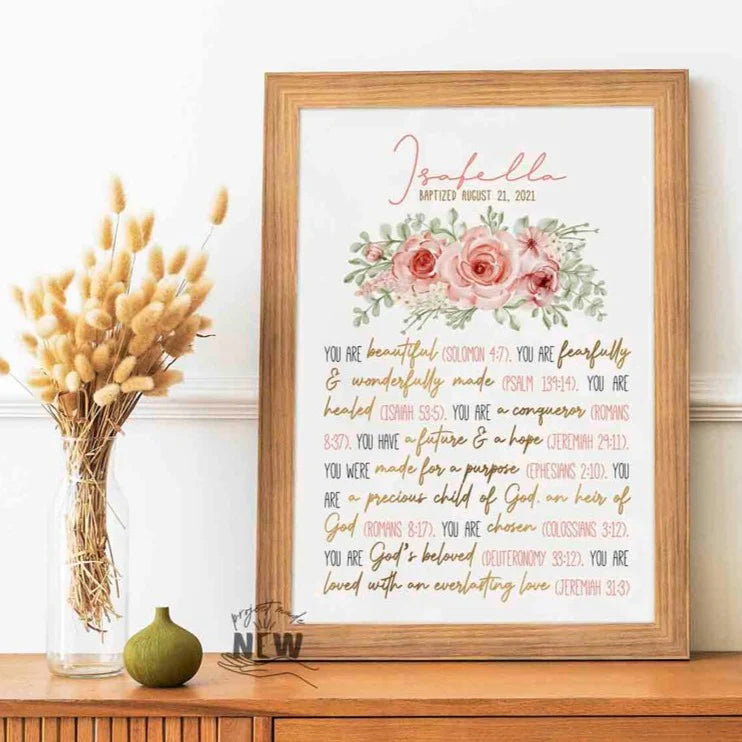 Isabella
BAPTIZED AUGUST 21, 2021
YOU ARE beautiful (SOLOMON 4:7). YOU ARE fearfully
& wonderfully made (PSALM 139:14). YOU ARE
healed (ISAIAH 53:5). YOU ARE a conqueror (ROMANS
8:37). YOU HAVE a future & a hope (JEREMIAH 29:11).
YOU WERE made for a purpose (EPHESIANS 2:10). YOU
ARE a precious child of God, an heir of
God (ROMANS 8:17). YOU ARE chosen (COLOSSIANS 3:12).
YOU ARE God's beloved (DEUTERONOMY 33:12). YOU ARE
loved with an everlasting love (JEREMIAH 31:3)
project made
NEW